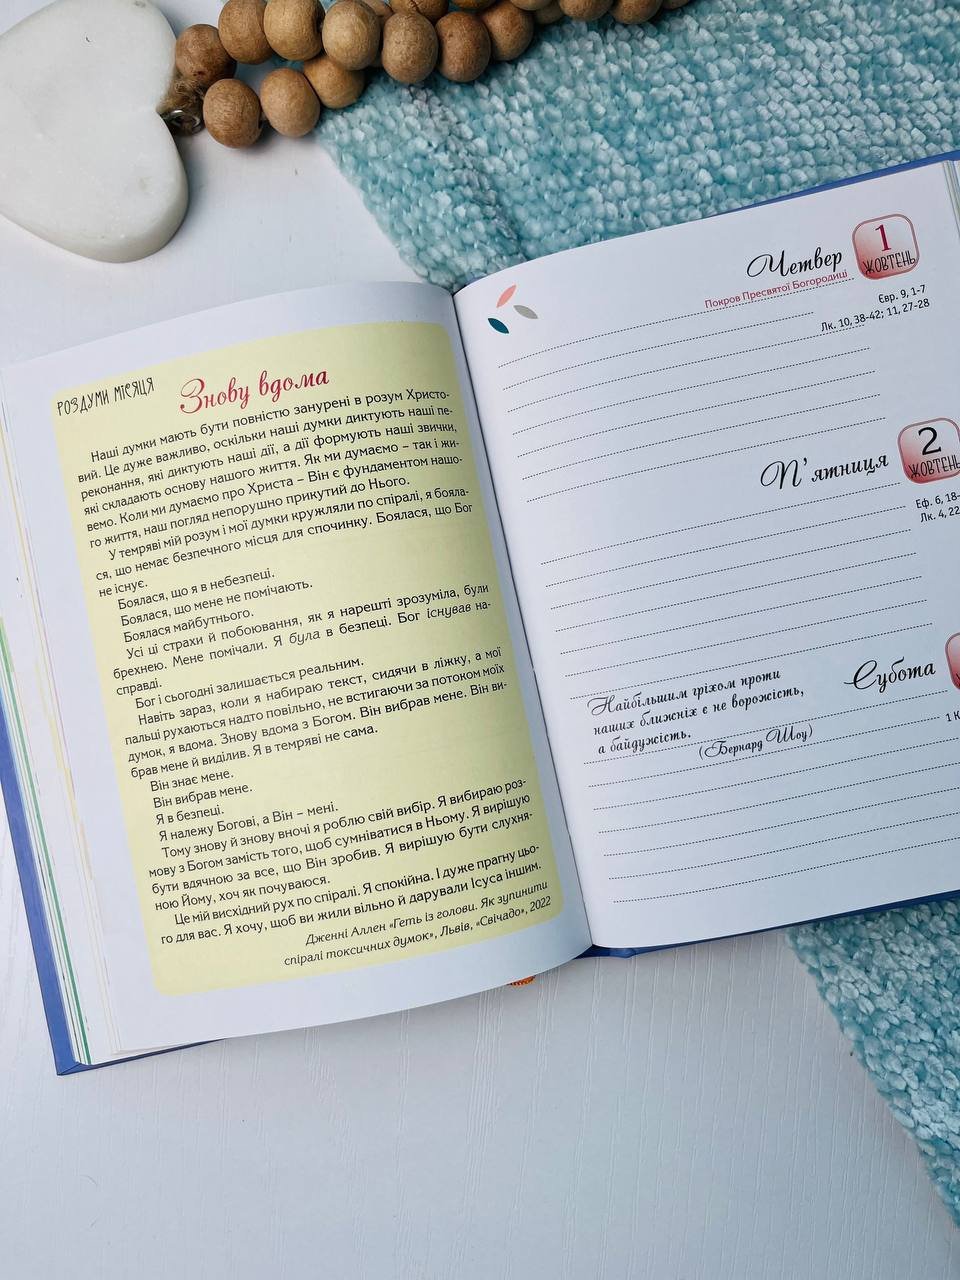 РОЗДУМИ МІСЯЦЯ
Знову вдома
Наші думки мають бути повністю занурені в розум Христо-
вий. Це дуже важливо, оскільки наші думки диктують наші пе-
реконання, які диктують наші дії, а дії формують наші звички,
які складають основу нашого життя. Як ми думаємо – так і жи-
вемо. Коли ми думаємо про Христа – Він є фундаментом нашо-
го життя, наш погляд непорушно прикутий до Нього.
У темряві мій розум і мої думки кружляли по спіралі, я бояла-
ся, що немає безпечного місця для спочинку. Боялася, що Бог
не існує.
Боялася, що я в небезпеці.
Боялася, що мене не помічають.
Боялася майбутнього.
Усі ці страхи й побоювання, як я нарешті зрозуміла, були
брехнею. Мене помічали. Я була в безпеці. Бог існував на-
справді.
Бог і сьогодні залишається реальним.
Навіть зараз, коли я набираю текст, сидячи в ліжку, а мої
пальці рухаються надто повільно, не встигаючи за потоком моїх
думок, я вдома. Знову вдома з Богом. Він вибрав мене. Він ви-
брав мене й виділив. Я в темряві не сама.
Він знає мене.
Він вибрав мене.
Я в безпеці.
Я належу Богові, а Він – мені.
Тому знову й знову вночі я роблю свій вибір. Я вибираю роз-
мову з Богом замість того, щоб сумніватися в Ньому. Я вирішую
бути вдячною за все, що Він зробив. Я вирішую бути слухня-
ною Йому, хоч як почуваюся.
Це мій висхідний рух по спіралі. Я спокійна. І дуже прагну цьо-
го для вас. Я хочу, щоб ви жили вільно й дарували Ісуса іншим.
Дженні Аллен «Геть із голови. Як зупинити
спіралі токсичних думок», Львів, «Свічадо», 2022
Четвер
1
ЖОВТЕНЬ
Покров Пресвятої Богородиці
Євр. 9, 1-7
Лк. 10, 38-42; 11, 27-28
П'ятниця
2
ЖОВТЕНЬ
Еф. 6, 18-
Лк. 4, 22
Субота
Найбільшим гріхом проти
наших ближніх є не ворожість,
а байдужість.
(Бернард Шоу)
1 К